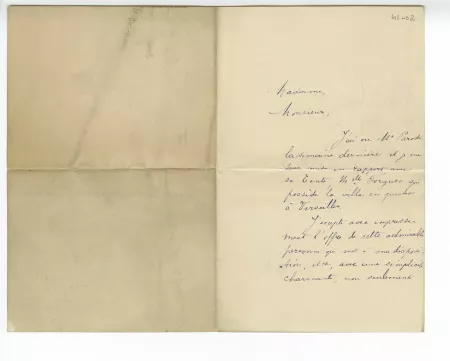 Madame,
Monsieur,
J'ai vu Mr
la semaine dernière et je me
suis mis en rapport avec
sa tante Melle qui
possède la villa en question
à Versailles.
J'accepte avec empresse-
ment l'offre de cette admirable
personne qui met à ma disposi-
tion, et ce, avec une simplicité
charmante, non seulement